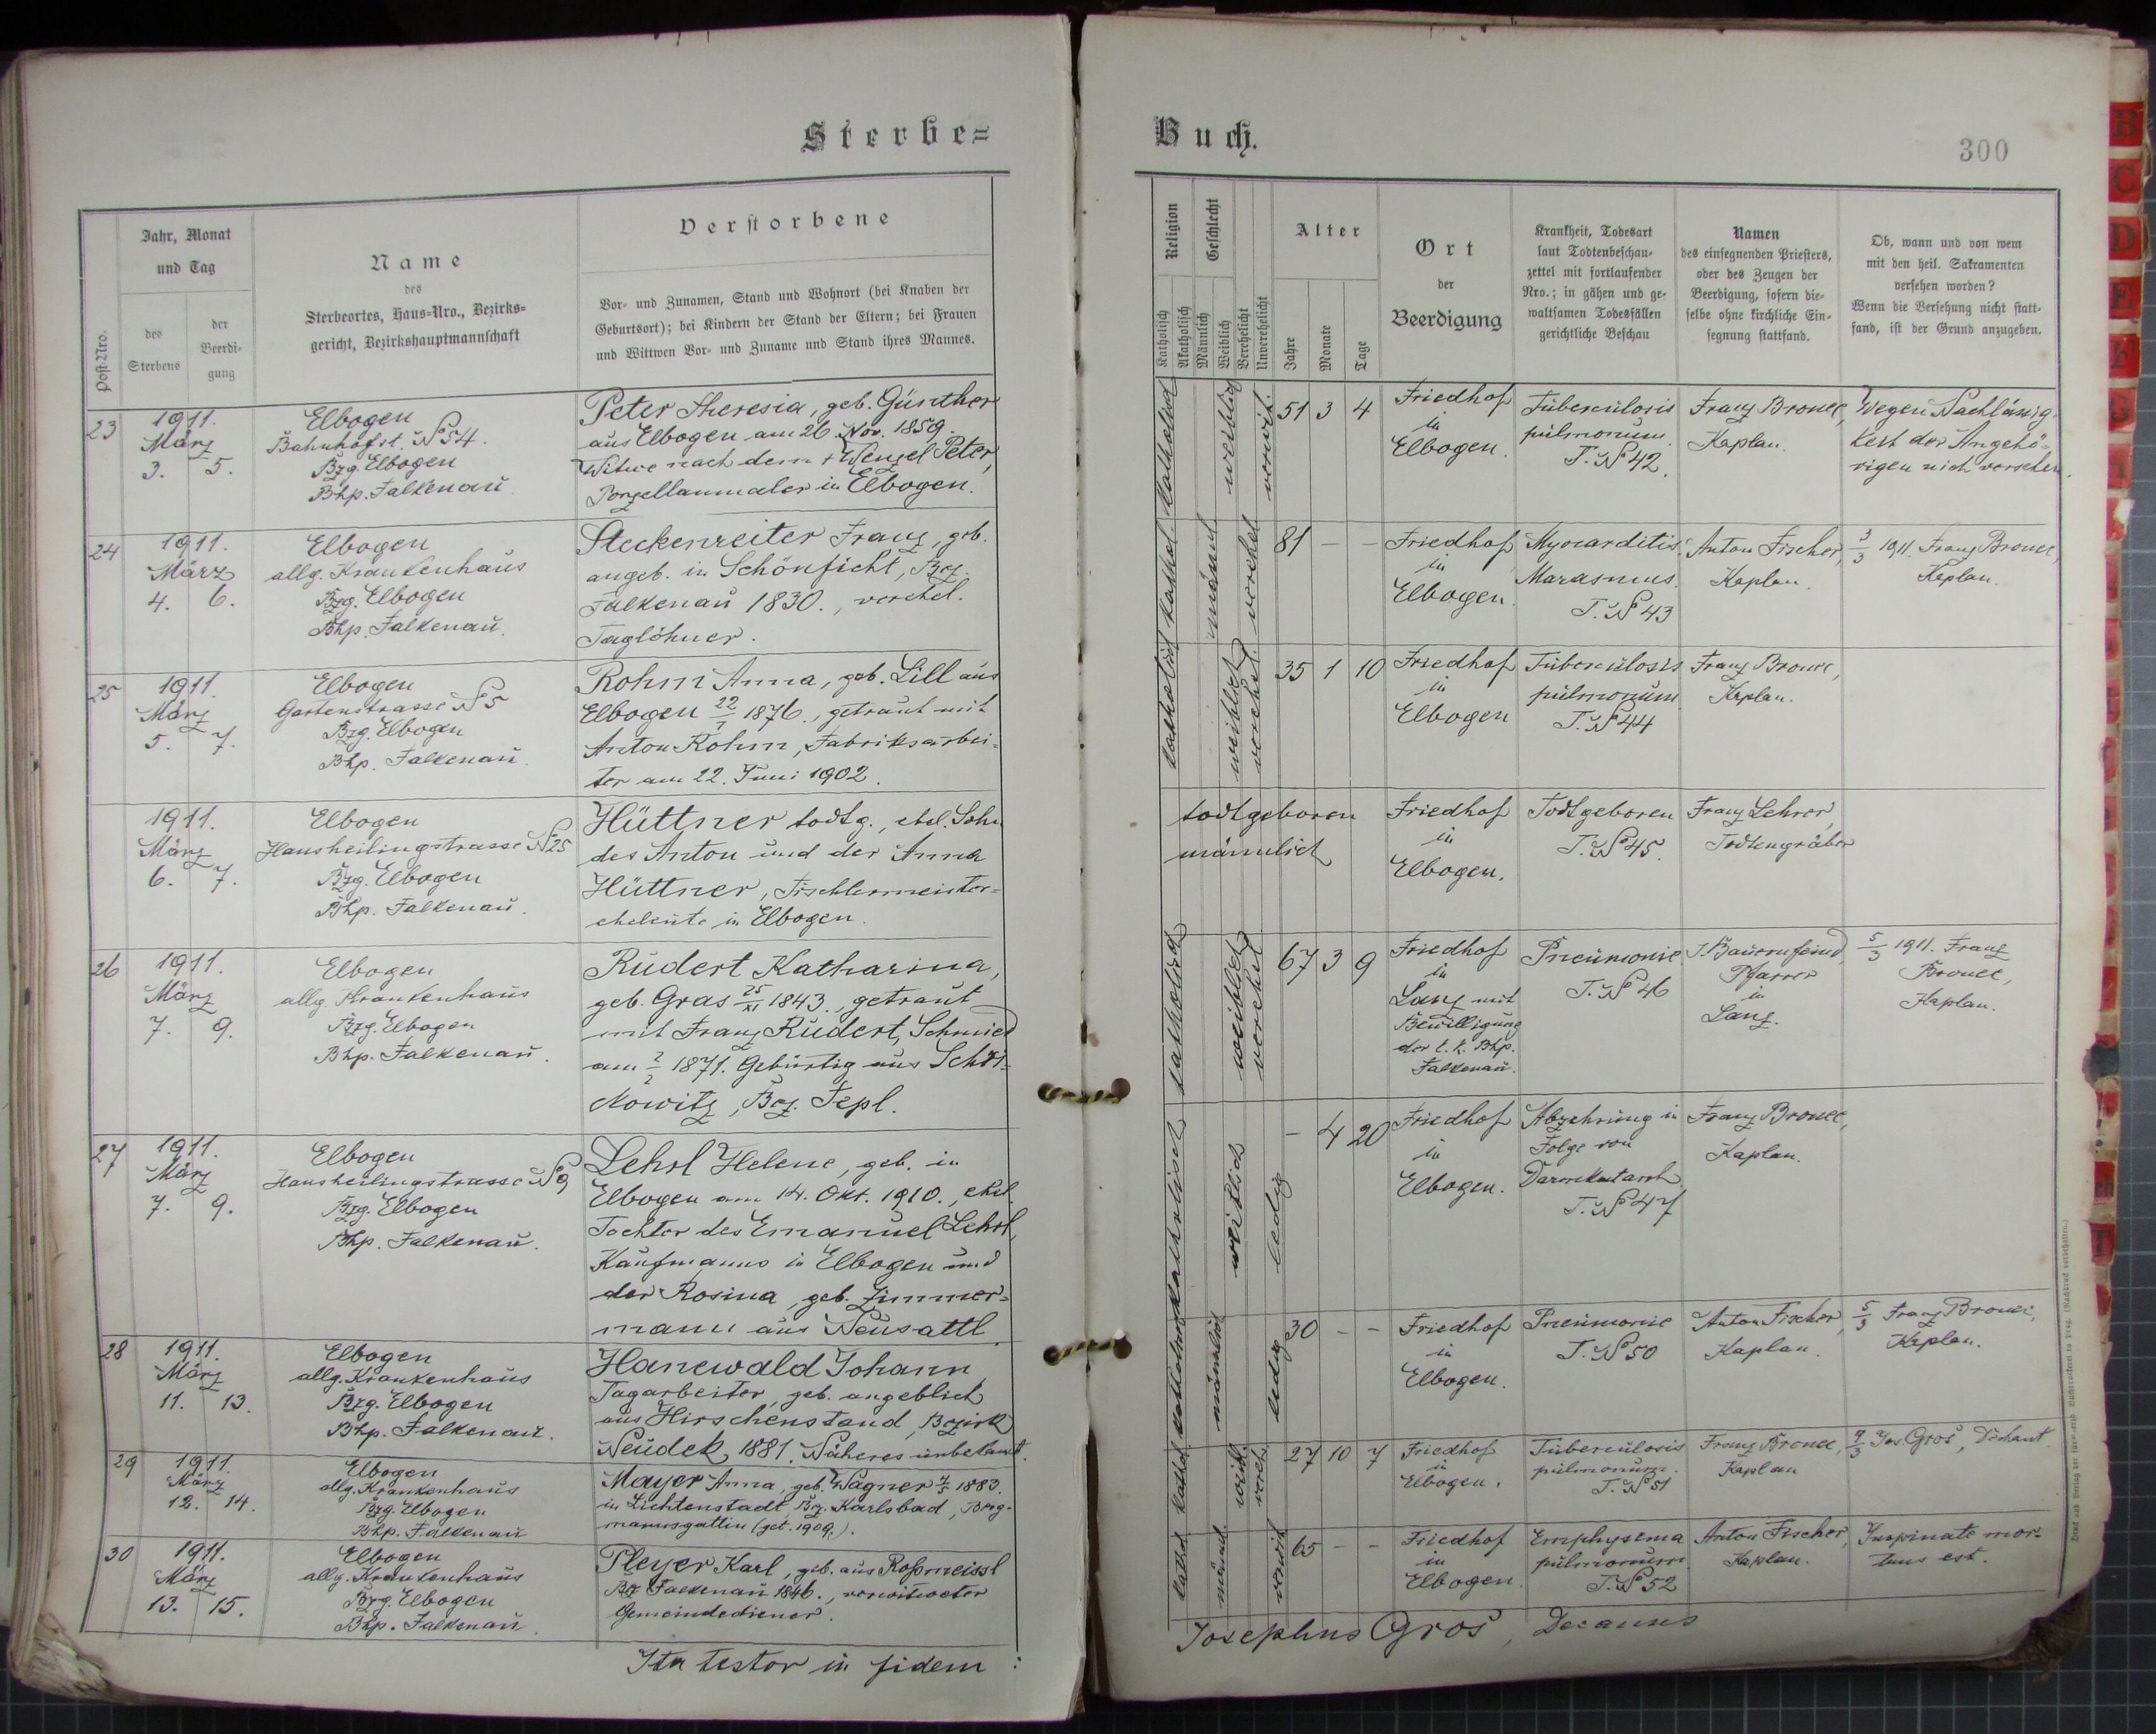 Sterbe=
Buch.
300
Post-Nro.
Jahr, Monat
und Tag
des
Sterbens
der
Beerdi-
gung
Name
des
Sterbeortes, Haus-Nro., Bezirks-
gericht, Bezirkshauptmannschaft
Verstorbene
Vor- und Zunamen, Stand und Wohnort (bei Knaben der
Geburtsort); bei Kindern der Stand der Eltern; bei Frauen
und Wittwen Vor- und Zuname und Stand ihres Mannes.
Religion
Katholisch
Akatholisch
Geschlecht
Männlich
Weiblich
Verehelicht
Unverehelicht
Alter
Jahre
Monate
Tage
Ort
der
Beerdigung
Krankheit, Todesart
laut Todtenbeschau-
zettel mit fortlaufender
Nro.; in gähen und ge-
waltsamen Todesfällen
gerichtliche Beschau
Namen
des einsegnenden Priesters,
oder des Zeugen der
Beerdigung, sofern die-
selbe ohne kirchliche Ein-
segnung stattfand.
Ob, wann und von wem
mit den heil. Sakramenten
versehen worden?
Wenn die Versehung nicht statt-
fand, ist der Grund anzugeben.
23
1911.
März
3. 5.
Elbogen
Bahnhofst. No 54.
Bzg. Elbogen
Bhp. Falkenau
Peter Theresia, geb. Günther
aus Elbogen am 26. Nov. 1859.
Witwe nach dem + Wenzel Peter,
Porzellanmaler in Elbogen.
weiblich
verwit.
51 3 4
Friedhof
in
Elbogen.
Tuberculosis
pulmonum.
T. No 42.
Franz Bronec,
Kaplan.
Wegen Nachlässig-
keit der Angehö-
rigen nich versehen.
24
1911.
März
4. 6.
Elbogen
allg. Krankenhaus
Bzg. Elbogen
Bhp. Falkenau.
Steckenreiter Franz, geb.
angeb. in Schönficht, Bez.
Falkenau 1830., verehel.
Taglöhner.
kathol.
männl.
verehel.
81 - -
Friedhof
in
Elbogen.
Myocarditis
Marasmus.
T. No 43
Anton Fischer,
Kaplan.
3/3 1911. Franz Bronec,
Kaplan.
25
1911.
März
5. 7.
Elbogen
Gartenstrasse No 5
Bzg. Elbogen
Bhp. Falkenau.
Rohm Anna, geb. Lill aus
Elbogen 22/1 1876., getraut mit
Anton Rohm, Fabriksarbei-
ter am 22. Juni 1902.
katholisch
weiblich
verehel.
35 1 10
Friedhof
in
Elbogen
Tuberculosis
pulmonum.
T. No 44
Franz Bronec,
Kaplan.
1911.
März
6. 7.
Elbogen
Hansheilingstrasse No 25
Bzg. Elbogen
Bhp. Falkenau.
Hüttner todtg., ehel. Sohn
des Anton und der Anna
Hüttner, Tischlermeister-
eheleute in Elbogen.
todtgeboren
männlich
Friedhof
in
Elbogen.
Todtgeboren
T. No 45.
Franz Lehrer,
Todtengräber
26
1911.
März
7. 9.
Elbogen
allg. Krankenhaus
Bzg. Elbogen
Bhp. Falkenau.
Rudert Katharina,
geb. Gras 25/XI 1843., getraut
mit Franz Rudert, Schmied
am 7/2 1871. Gebürtig aus
Bez. Tepl.
katholisch
weiblich
verehel
67 3 9
Friedhof
in
Lanz mit
Bewilligung
der k. k. Bhp.
Falkenau.
Pneumonie
T. No 46
J. Bauernfeind,
Pfarrer
in
Lanz.
5/3 1911. Franz
Bronec,
Kaplan.
27
1911.
März
7. 9.
Elbogen
Hansheilingstrasse No 9
Bzg. Elbogen
Bhp. Falkenau.
Lehrl Helene, geb. in
Elbogen am 14. Okt. 1910., ehel.
Tochter des Emanuel Lehrl,
Kaufmanns in Elbogen und
der Rosina, geb. Zimmer-
mann aus Neusattl.
katholisch
weiblich
ledig
- 4 20
Friedhof
in
Elbogen.
Abzehrung in
Folge von
Darmkatarrh.
T. No 47
Franz Bronec,
Kaplan.
28
1911.
März
11. 13.
Elbogen
allg. Krankenhaus
Bzg. Elbogen
Bhp. Falkenau.
Hanewald Johann,
Tagarbeiter, geb. angeblich
aus Hirschenstand, Bezirk
Neudek 1881. Näheres unbekannt.
männlich
ledig
30 - -
Friedhof
in
Elbogen.
Pneumonie
T. No 50
Anton Fischer,
Kaplan.
5/3 Franz Bronec,
Kaplan.
29
1911.
März
12. 14.
Elbogen
allg. Krankenhaus
Bzg. Elbogen
Bhp. Falkenau
Mayer Anna, geb. Wagner 1883.
in Lichtenstadt, Bez. Karlsbad, Berg-
mannsgattin (get. 1909.).
kathol.
weibl.
verehel.
27 10 7
Friedhof
in
Elbogen.
Tuberculosis
pulmonum.
T. No 51
Franz Bronec,
Kaplan
9/3 Jos. Gros, Dechant.
30
1911.
März
13. 15.
Elbogen
allg. Krankenhaus
Bzg. Elbogen
Bhp. Falkenau.
Pleyer Karl, geb. aus Roßmeissl
Bez. Falkenau 1846., verwitweter
Gemeindediener.
kathol.
männl.
verwit.
65 - -
Friedhof
in
Elbogen.
Emphysema
pulmonum.
T. No 52
Anton Fischer,
Kaplan.
mor-
tuus est.
Ita testor in fidem:
Josephus Gros, Decanus